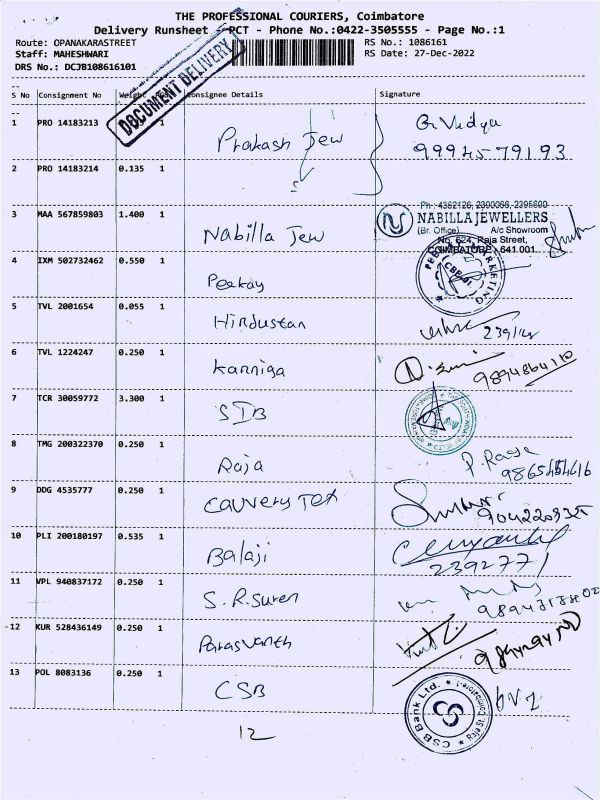 THE PROFESSIONAL COURIERS, Coimbatore
Delivery Runsheet - PCT - Phone No.:0422-3505555 - Page No.:1
Route: OPANAKARASTREET RS No.: 1086161
Staff: MAHESHWARI RS Date: 27-Dec-2022
DRS No.: DCJB108616101
DOCUMENT DELIVERY
S No Consignment No Weight Consignee Details Signature
1 PRO 14183213 1 Prakash Jew G. Vidya
99945-79193
2 PRO 14183214 0.135 1
Ph : 4382126, 2300066, 2395600
3 MAA 567859803 1.400 1 Nabilla Jew NABILLA JEWELLERS
(Br. Office) A/c Showroom
No. 624, Raja Street,
COIMBATORE - 641 001.
4 IXM 502732462 0.550 1 Peekay
5 TVL 2001654 0.055 1 Hindustan
6 TVL 1224247 0.250 1 Kanniga 9894864110
7 TCR 30059772 3.300 1 SIB
8 TMG 200322370 0.250 1 Raja P. Raja
9 DDG 4535777 0.250 1 Cauvery Tex
10 PLI 200180197 0.535 1 Balaji
2392771
11 VPL 940837172 0.250 1 S.R.Suren
12 KUR 528436149 0.250 1
13 POL 8083136 0.250 1 CSB CSB Bank Ltd.
12